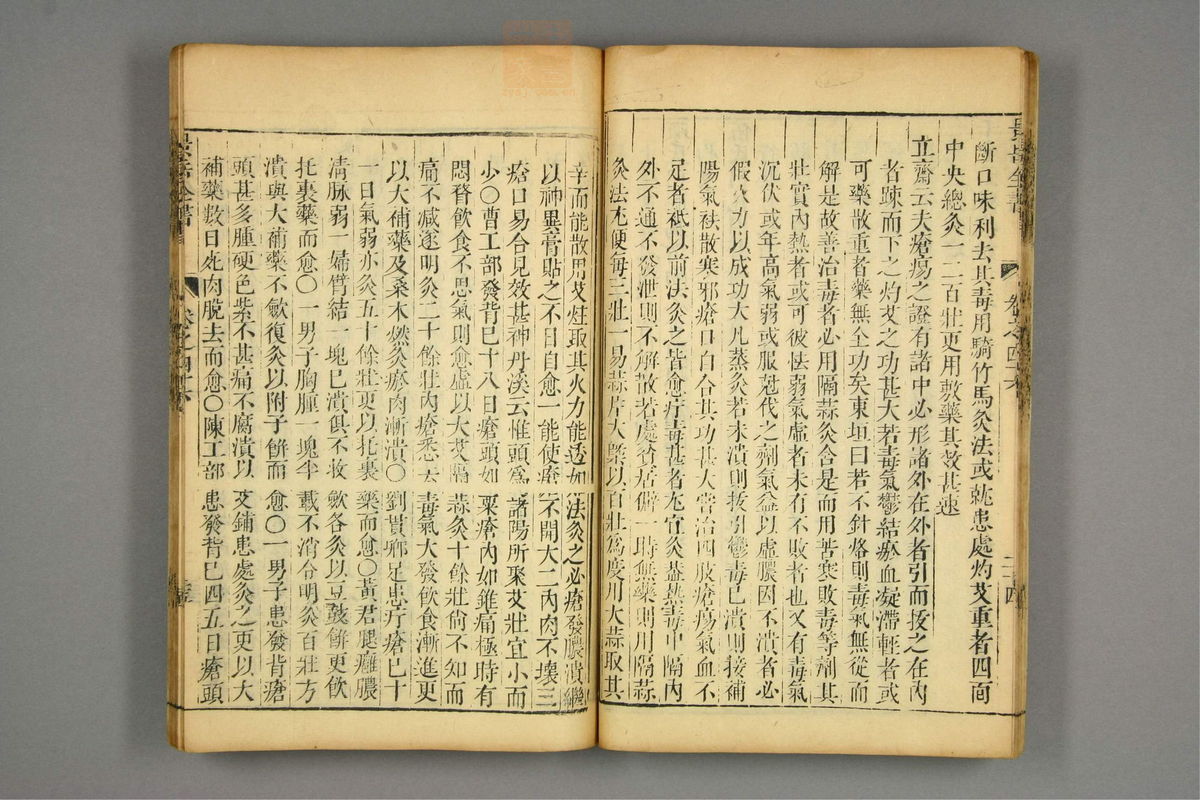 景岳全書
卷之四十六
二十四
斷口味利去其毒用騎竹馬灸法或就患處灼艾重者四面
中央總灸一二百壯更用敷藥其效甚速
立齋云夫瘡瘍之證有諸中必形諸外在外者引而拔之在內
者踈而下之灼艾之功甚大若毒氣鬱結瘀血凝滯輕者或
可藥散重者藥無全功矣東垣曰若不針烙則毒氣無從而
解是故善治毒者必用隔蒜灸舍是而用苦寒敗毒等劑其
壯實內熱者或可彼怯弱氣虛者未有不敗者也又有毒氣
沉伏或年高氣弱或服尅伐之劑氣益以虛膿因不潰者必
假火力以成功大凡蒸灸若未潰則拔引鬱毒已潰則接補
陽氣祛散寒邪瘡口自合其功甚大嘗治四肢瘡瘍氣血不
足者祗以前法灸之皆愈疔毒甚者尤宜灸葢熱毒中隔內
外不通不發泄則不解散若處窮居僻一時無藥則用隔蒜
灸法尤便每三壯一易蒜片大槩以百壯爲度用大蒜取其
辛而能散用艾炷取其火力能透如法灸之必瘡發膿潰繼
以神異膏貼之不日自愈一能使瘡不開大二內肉不壞三
瘡口易合見效甚神丹溪云惟頭爲諸陽所聚艾壯宜小而
少○曹工部發背已十八日瘡頭如粟瘡內如錐痛極時有
悶瞀飲食不思氣則愈虛以大艾隔蒜灸十餘壯尙不知而
痛不減遂明灸二十餘壯內瘡悉去毒氣大發飲食漸進更
以大補藥及桑木燃灸瘀肉漸潰○劉貢鄉足患疔瘡已十
一日氣弱亦灸五十餘壯更以托裏藥而愈○黃君腿癰膿
淸脉弱一婦臂結一塊已潰俱不收斂各灸以豆豉餅更飲
托裏藥而愈○一男子胸腫一塊半載不消令明灸百壯方
潰與大補藥不斂復灸以附子餅而愈○一男子患發背瘡
頭甚多腫硬色紫不甚痛不腐潰以艾鋪患處灸之更以大
補藥數日死肉脫去而愈○陳工部患發背已四五日瘡頭
景岳全書
卷之四十六